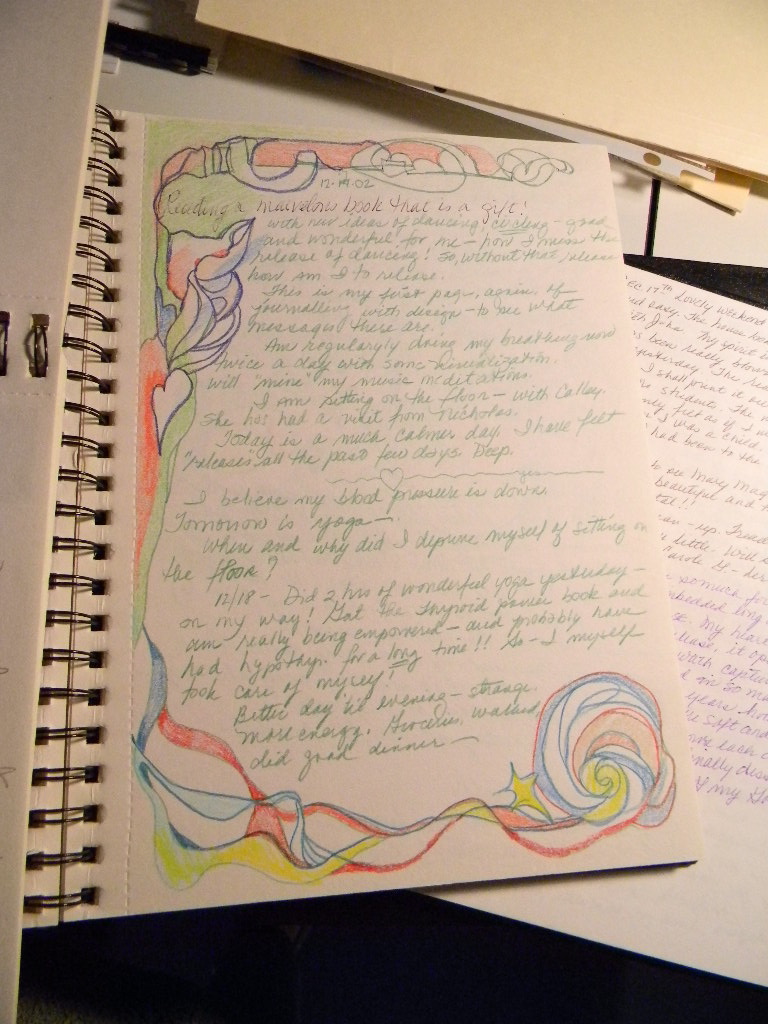 12-14-02
Reading a marvelous book that is a gift!
with new ideas of dancing, circling - good
and wonderful for me - how I miss the
release of dancing! So, without that release
how am I to release.
This is my first page, again, of
journaling with design - to see what
messages there are!
Am regularly doing my breathing now
twice a day with some visualization.
will "mine" my music meditations.
I am sitting on the floor - with Calley.
She has had a visit from Nicholas.
Today is a much calmer day. I have felt
"releases" all the past few days. Deep.
yes
I believe my blood pressure is down.
Tomorrow is yoga -
When and why did I deprive myself of sitting on
the floor?
12/18 - Did 2 hrs of wonderful yoga yesterday -
on my way! Got the Thyroid power book and
am really being empowered - and probably have
had hypothyr. for a long time!! So - I myself
took care of myself!
Better day 'til evening - strange.
more energy. Groceries, walked
did good dinner -
DEC 17TH Lovely without
and easy. The house
with John. My
been really
yesterday. The
I shall point it out
students. The
only feet as if I
I was a child.
had been to the
to see Mary
beautiful and
up.
settle. Will
so much for
embedded long
My heart
release, it
warth
in so
years
soft and
each
my